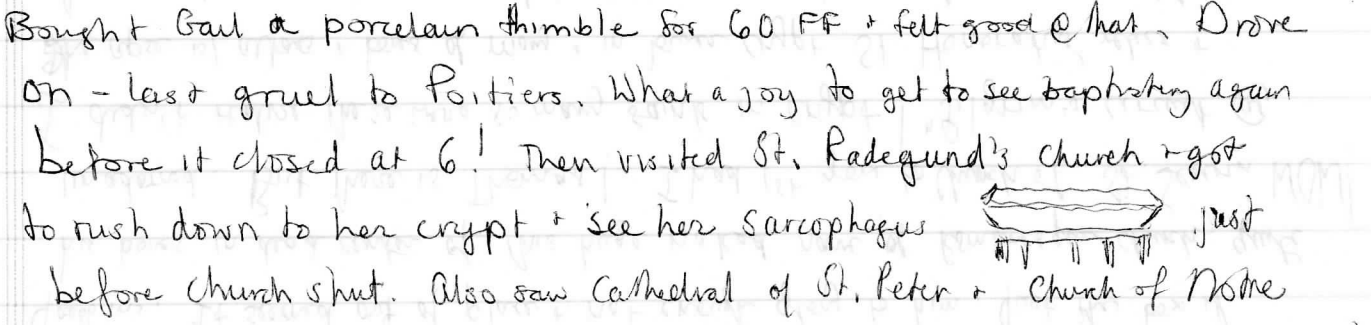 Bought Gail a porcelain thimble for 60 FF + felt good @ that. Drove
on - last gruel to Poitiers. What a joy to get to see baptistry again
before it closed at 6! Then visited St. Radegund's church + got
to rush down to her crypt + see her sarcophagus just
before church shut. Also saw Cathedral of St. Peter + Church of Notre